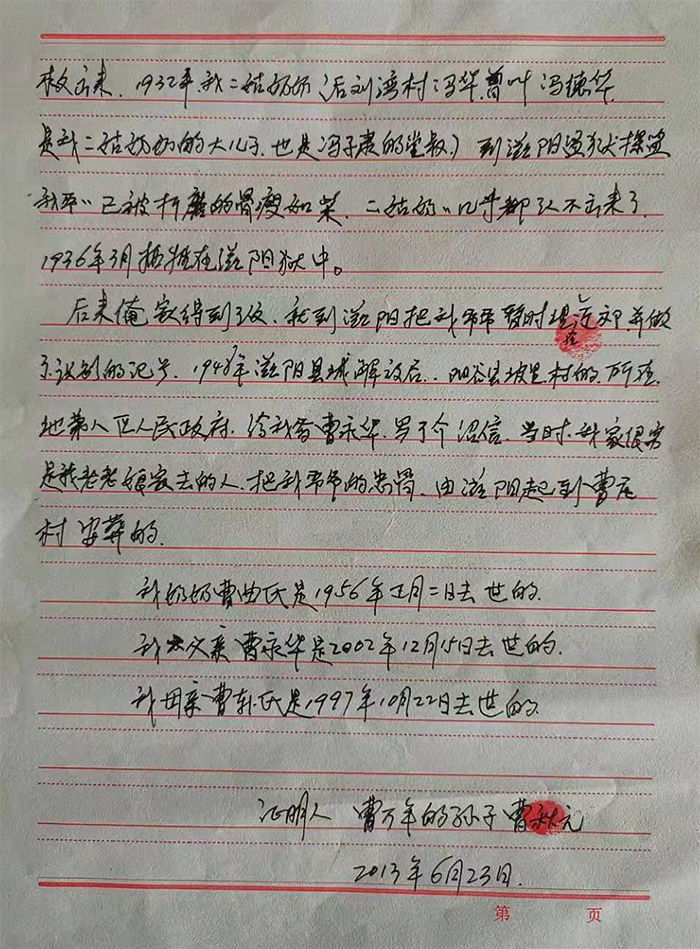 救出来.1932年.我二姑奶奶(后刘湾村冯华.曾叫冯德华.
是我二姑奶奶的大儿子.也是冯子康的堂叔)到滋阳监狱探监
我爷〃已被折磨的骨瘦如柴.二姑奶〃几乎都认不出来了.
1936年3月牺牲在滋阳狱中。
后来俺家得到了信.就到滋阳把我爷爷暂时埋
近郊.并做
了识别的记号.1948年滋阳县城解放后..阳谷县坡里村的
地第八区人民政府.给我爹曹永华.写了个沼信.当时.我家很穷
是我老老娘家去的人.把我爷爷的忠骨.由滋阳起到曹庄
村安葬的.
我奶奶曹曲氏是1956年正月二日去世的.
我父亲曹永华是2002年12月15日去世的.
我母亲曹 氏是1997年10月22日去世的.
证明人 曹万年的孙子曹秋元
2013年6月23日.
第 页